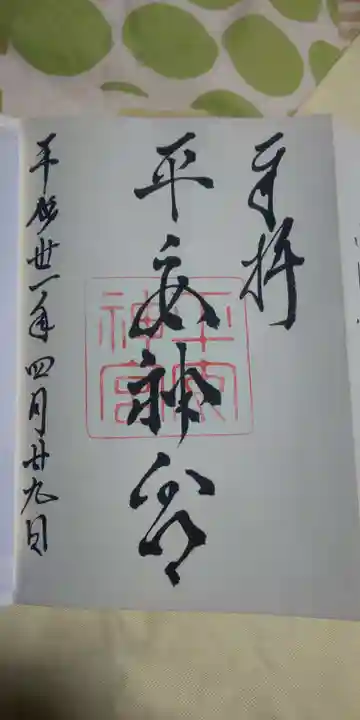 奉拝
平安神宮
平安神宮
平成廿一年四月廿九日